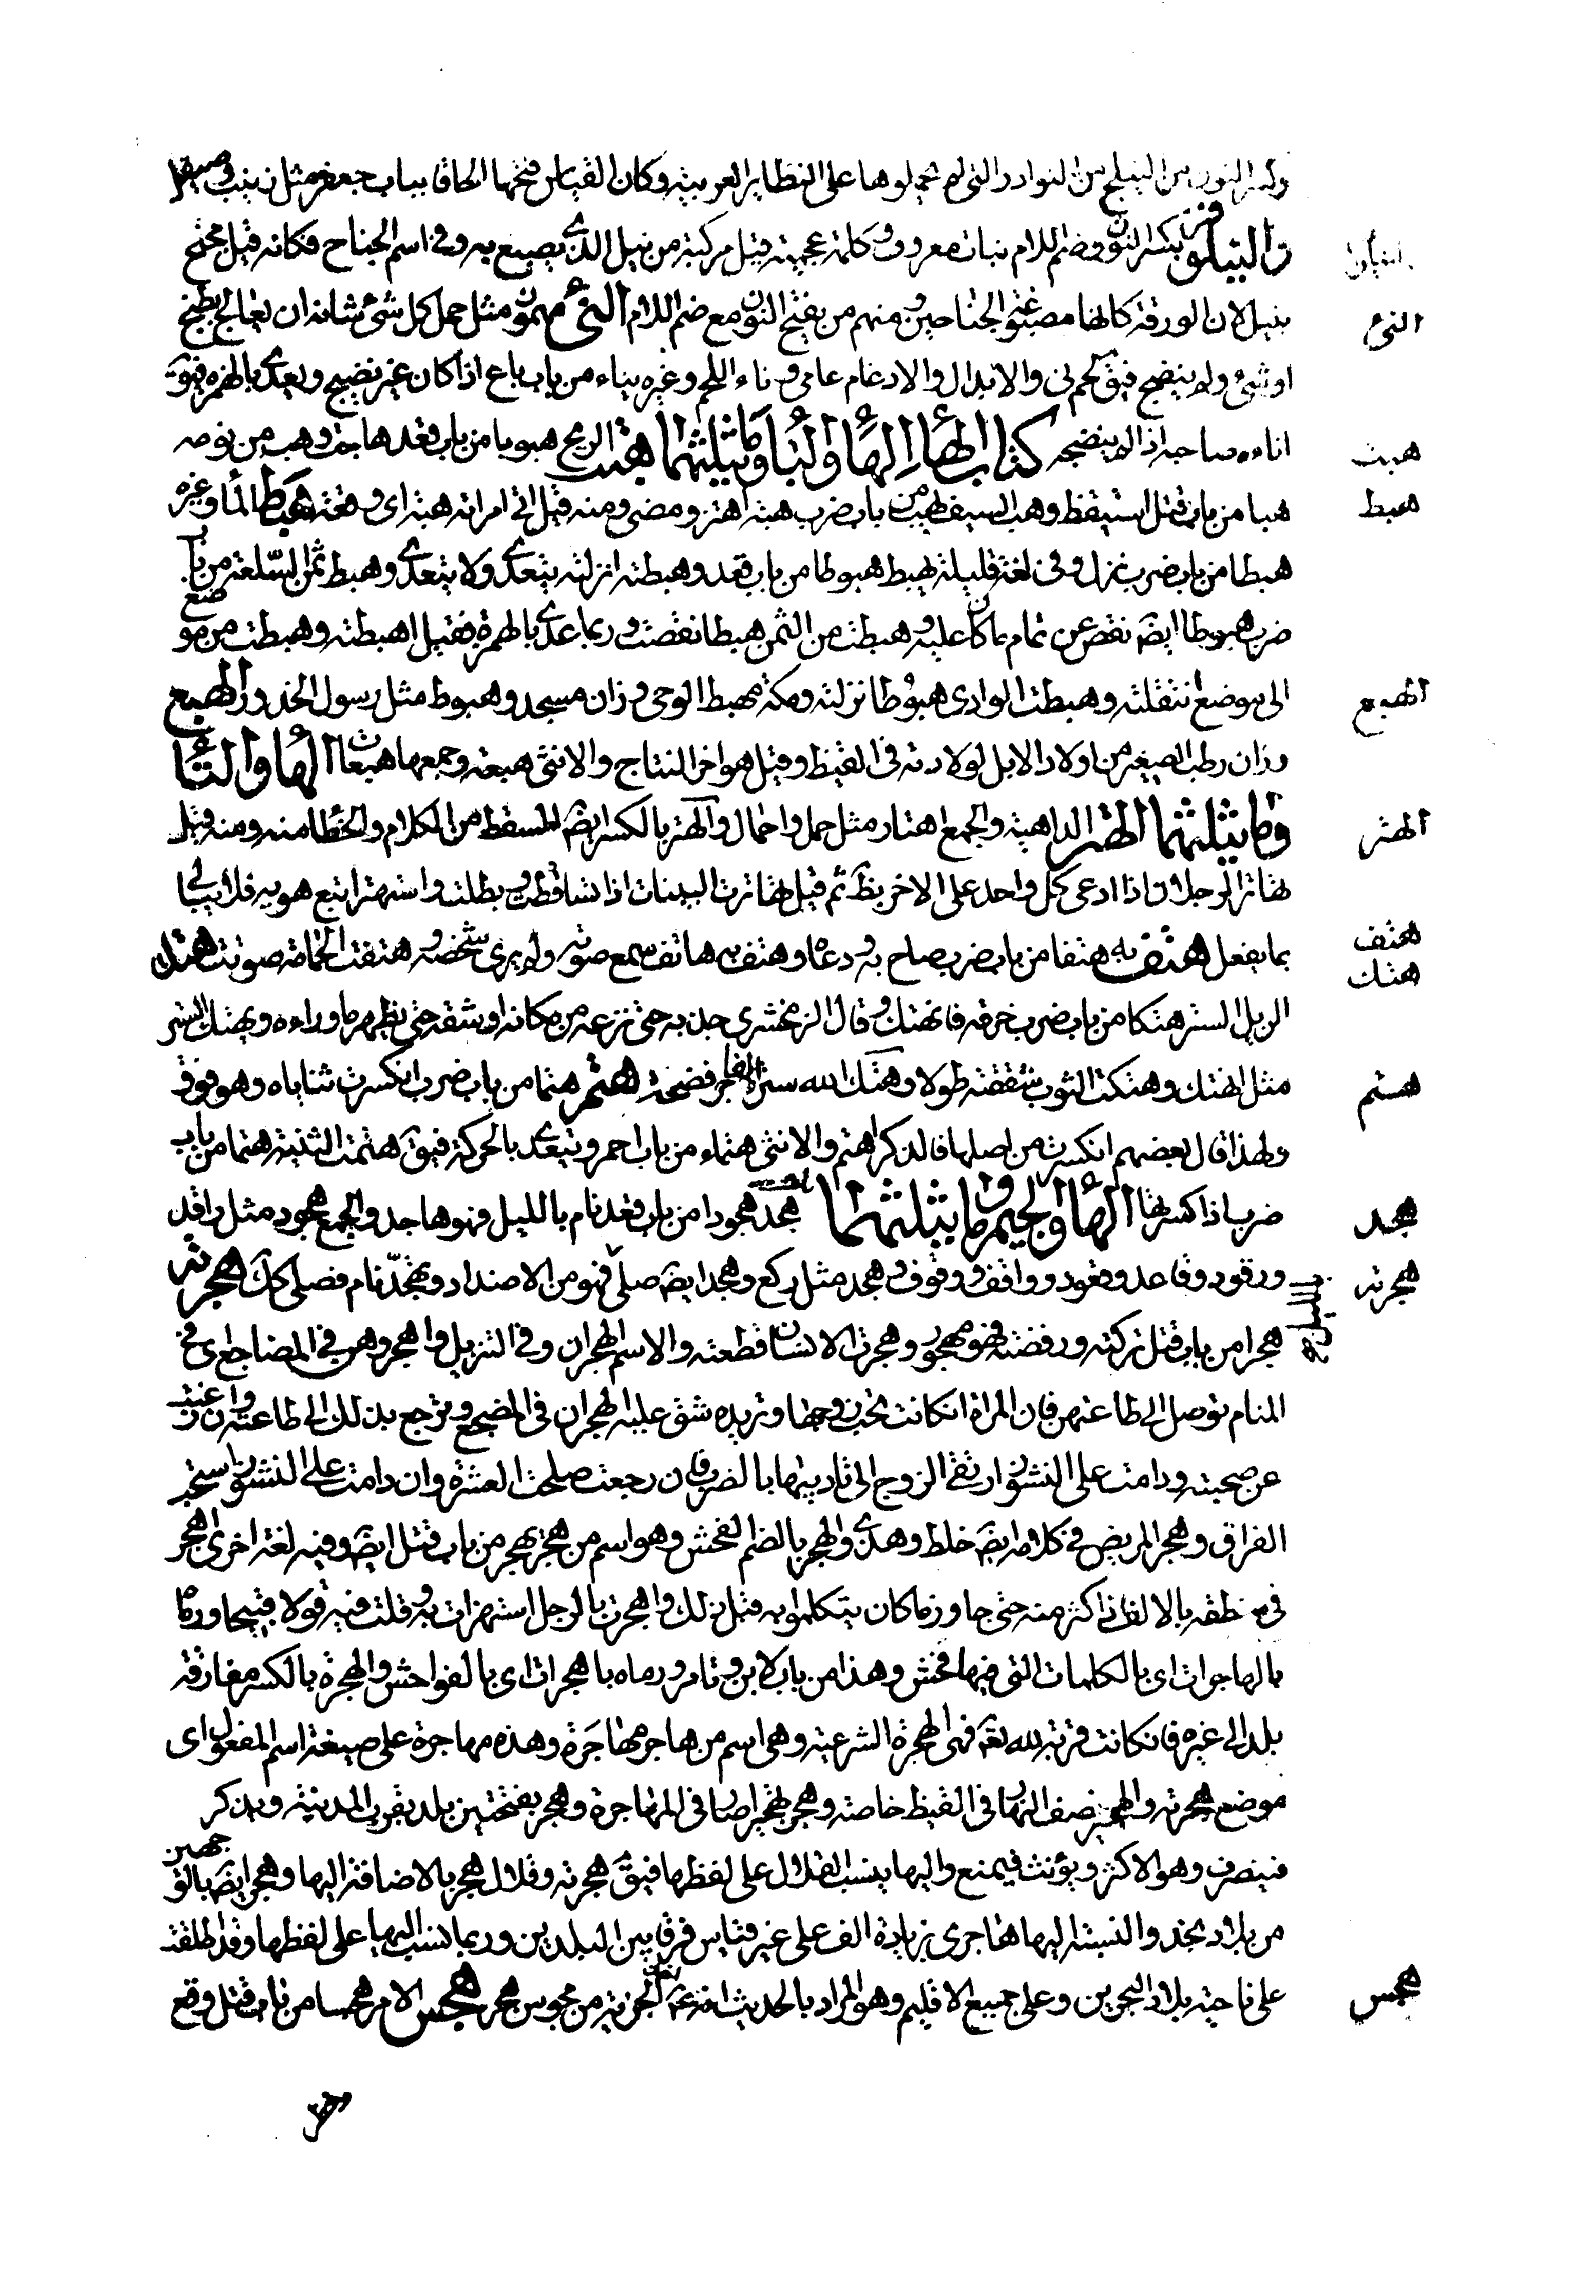 وكسر النون من النيلج من النوادر التى لم يحملوها على النظاير العربية وكان القياس فتحها الحاقا بباب جعفر مثل زينب وصيرف
والنيلوفر بكسر النون وضم اللام نبات معروف وكلمة عجمية قيل مركبة من نيل الذى يصبغ به وفر اسم الجناح فكانه قيل مجنح
بنيل لان الورقة كانها مصبوغة الجناحين ومنهم من يفتح النون مع ضم اللام النئ مهموز مثل حمل كل شئ شانه ان يعالج بطبخ
النئ
او شئ ولم ينضج فيق لحم نى والابدال والادغام عامى وناء اللحم وغيره يناء من باب باع اذا كان غير نضيج ويعدى بالهمزه فيق
اناءه صاحبه اذا لم ينضجه كتاب الهاء الهاء والباء وما يثلثهما هبت الريح هبوبا من باب قعد هاجت وهب من نومه
هبت
هبا من باب قتل استيقظ وهب السيف يهب من باب ضرب هبة اهتز ومضى ومنه قيل اتى امراته هبة اى وقعة هبط الماء وغيره
هبط
هبطا من باب ضرب نزل وفى لغة قليلة يهبط هبوطا من باب قعد وهبطته انزلته يتعدى ولا يتعدى وهبط ثمن السلعة من باب
ضرب هبوطا ايضا نقص عن تمام ما كان عليه وهبطت من الثمن هبطا نقصت وربما عدى بالهمزة فقيل اهبطته وهبطت من موضع
الى موضع انتقلت وهبطت الوادى هبوطا نزلته ومكة مهبط الوحى وزان مسجد وهبوط مثل رسول الحدور الهبع
الهبع
وزان رطب الصغير من اولاد الابل لولادته فى القيظ وقيل هو اخر النتاج والانثى هبعة وجمعها هبعات الهاء والتاء
وما يثلثهما الهتر الداهية والجمع اهتار مثل حمل واحمال والهتر بالكسر ايضا السقط من الكلام والخطا منه ومنه قيل
الهتر
تهاتر الرجلان اذا ادعى كل واحد على الاخر بط ثم قيل تهاترت البينات اذا تساقطت وبطلت واستهتر اتبع هويه فلا يبالى
بما يفعل هتف به هتفا من باب ضرب صاح به ودعاه وهتف به هاتف سمع صوته ولم ير شخصه وهتفت الحمامة صوتت هتك
هتف
هتك
الستر هتكا من باب ضرب خرقه فانهتك وقال الزمخشرى جذبه حتى نزعه من مكانه او شقه حتى يظهر ما وراءه وتهتك الستر
مثل انهتك وهتكت الثوب شققته طولا وهتك الله ستر الفاجر فضحه هتم هتما من باب ضرب انكسرت ثناياه وهو فوق
هتم
ولهذا قال بعضهم انكسرت من اصلها فالذكر اهتم والانثى هتماء من باب احمر ويتعدى بالحركة فيق هتمت الثنية هتما من باب
ضرب اذا كسرتها الهاء والجيم وما يثلثهما هجد هجودا من باب قعد نام بالليل فهو هاجد والجمع هجود مثل راقد
هجد
ورقود وقاعد وقعود وواقف ووقوف وهجد مثل ركع وهجد ايضا صلى فهو من الاضداد وتهجد نام وصلى كك هجرته
هجرته
هجرا من باب قتل تركته ورفضته فهو مهجور وهجرت الانسان قطعته والاسم الهجران وفى التنزيل واهجروهن فى المضاجع اى فى
المنام توصل الى طاعتهن فان المراة ان كانت تحب زوجها وتريده شق عليه الهجران فى المضجع وترجع بذلك الى طاعته وان رغبت
عن صحبته ودامت على النشوز ارتقى الزوج الى تاديبها بالضرب فان رجعت صلحت العشرة وان دامت على النشوز استحب
الفراق وهجر المريض فى كلامه ايضا خلط وهذى والهجر بالضم الفحش وهو اسم من هجر يهجر من باب قتل ايضا وفيه لغة اخرى اهجر
فى منطقه بالالف اذا اكثر منه حتى جاوز ما كان يتكلم به قبل ذلك واهجرت بالرجل استهزات به وقلت فيه قولا قبيحا ورماه
بالهاجرات اى بالكلمات التى فيها فحش وهذا من باب لابن وتامر ورماه بالهجرات اى بالفواحش والهجرة بالكسر مفارقة
بلد الى غيره فان كانت قربة لله تع فهى الهجرة الشرعية وهى اسم من هاجر مهاجرة وهذه مهاجرة على صيغة اسم المفعول اى
موضع هجرته والهجير نصف النهار فى القيظ خاصة وهجر تهجيرا صار فى الهاجرة وهجر بفتحتين بلد بقرب المدينة ويذكر
فينصرف وهو الاكثر ويؤنث فيمنع واليها ينسب القلال على لفظها فيق هجرية وقلال هجر بالاضافة اليها وهجر ايضا بالوجهين
من بلاد نجد والنسبة اليها هاجرى بزيادة الف على غير قياس فرقا بين البلدين وربما نسب اليها على لفظها وقد اطلقت
على ناحية بلاد البحرين وعلى جميع الاقليم وهو المراد بالحديث انه عم اخذ الجزية من مجوس هجر هجس الامر هجسا من باب قتل وقع
هجس